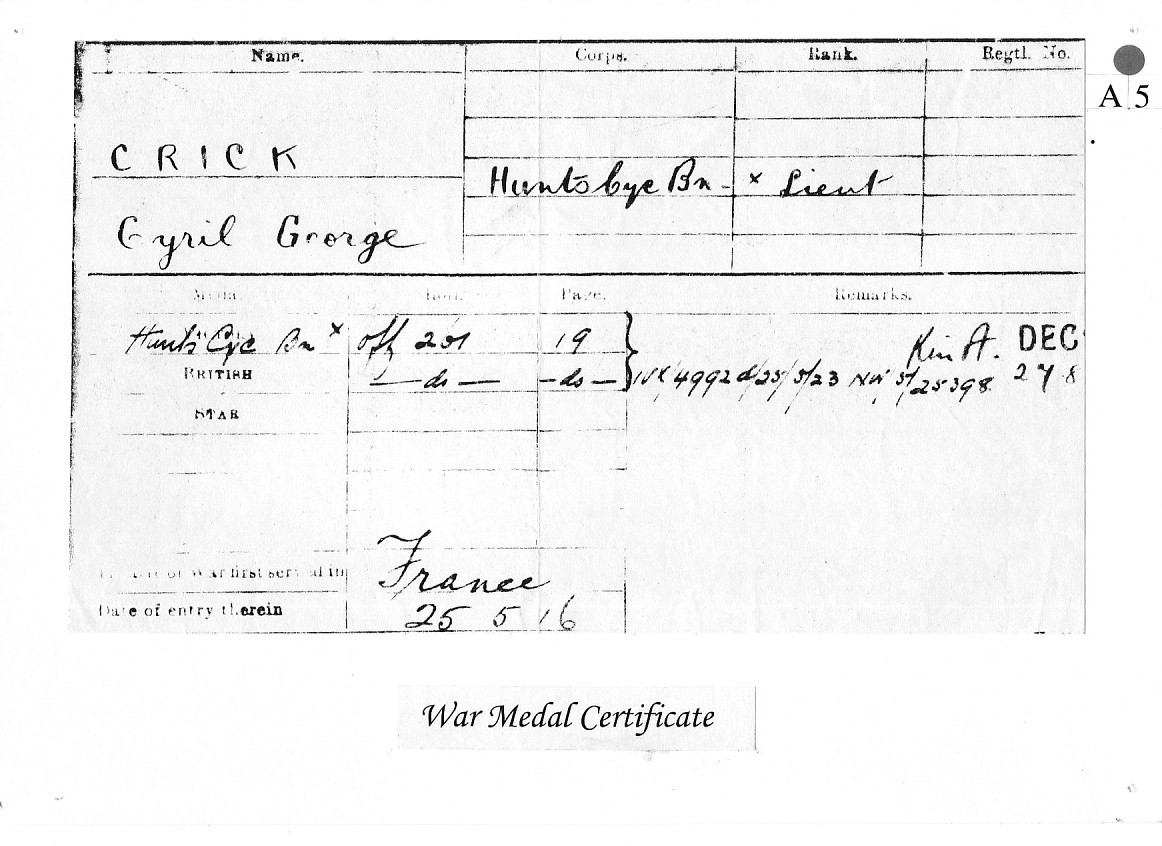 Name. Corps. Rank. Regtl. No.
A 5
CRICK
Hunts Cyc Bn - x Lieut
Cyril George
Medal. Roll. Page. Remarks.
Hunts Cyc Bn x Off 201 19 DEC
BRITISH — do — — do — 4992 d/25/5/23 NW 5/25398
STAR
Theatre of War first served in France
Date of entry therein 25 5 16
War Medal Certificate